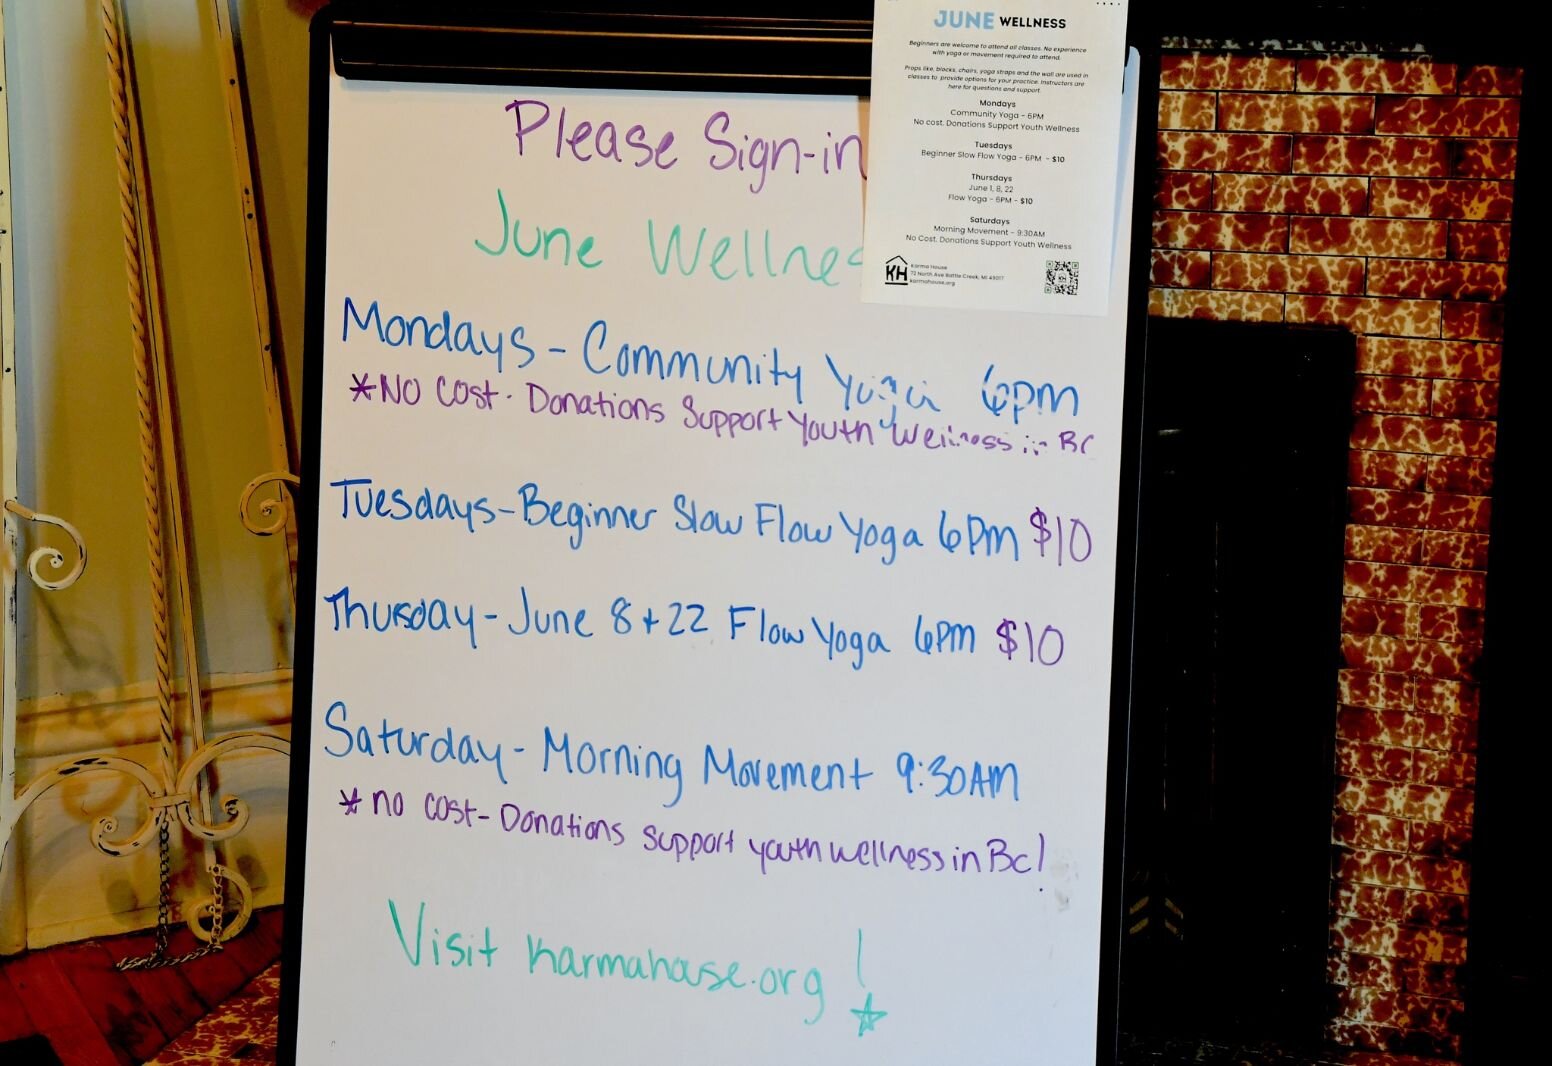 Please Sign-in
June Wellnes
Mondays - Community Yoga 6pm
*NO COST. Donations Support Youth Wellness in BC
Tuesdays-Beginner Slow Flow Yoga 6pm $10
Thursday-June 8+22 Flow Yoga 6pm $10
Saturday-Morning Movement 9:30AM
*no cost-Donations support youth wellness in Bc!
Visit karmahouse.org!
JUNE WELLNESS
Beginners are welcome to attend all classes. No experience
with yoga or movement required to attend.
Props like, blocks, chairs, yoga straps and the wall are used in
classes to provide options for your practice. Instructors are
here for questions and support.
Mondays
Community Yoga - 6PM
No cost. Donations Support Youth Wellness
Tuesdays
Beginner Slow Flow Yoga - 6PM - $10
Thursdays
June 1, 8, 22
Flow Yoga - 6PM - $10
Saturdays
Morning Movement - 9:30AM
No Cost. Donations Support Youth Wellness
KH
Karma House
72 North Ave Battle Creek, MI 49017
karmahouse.org